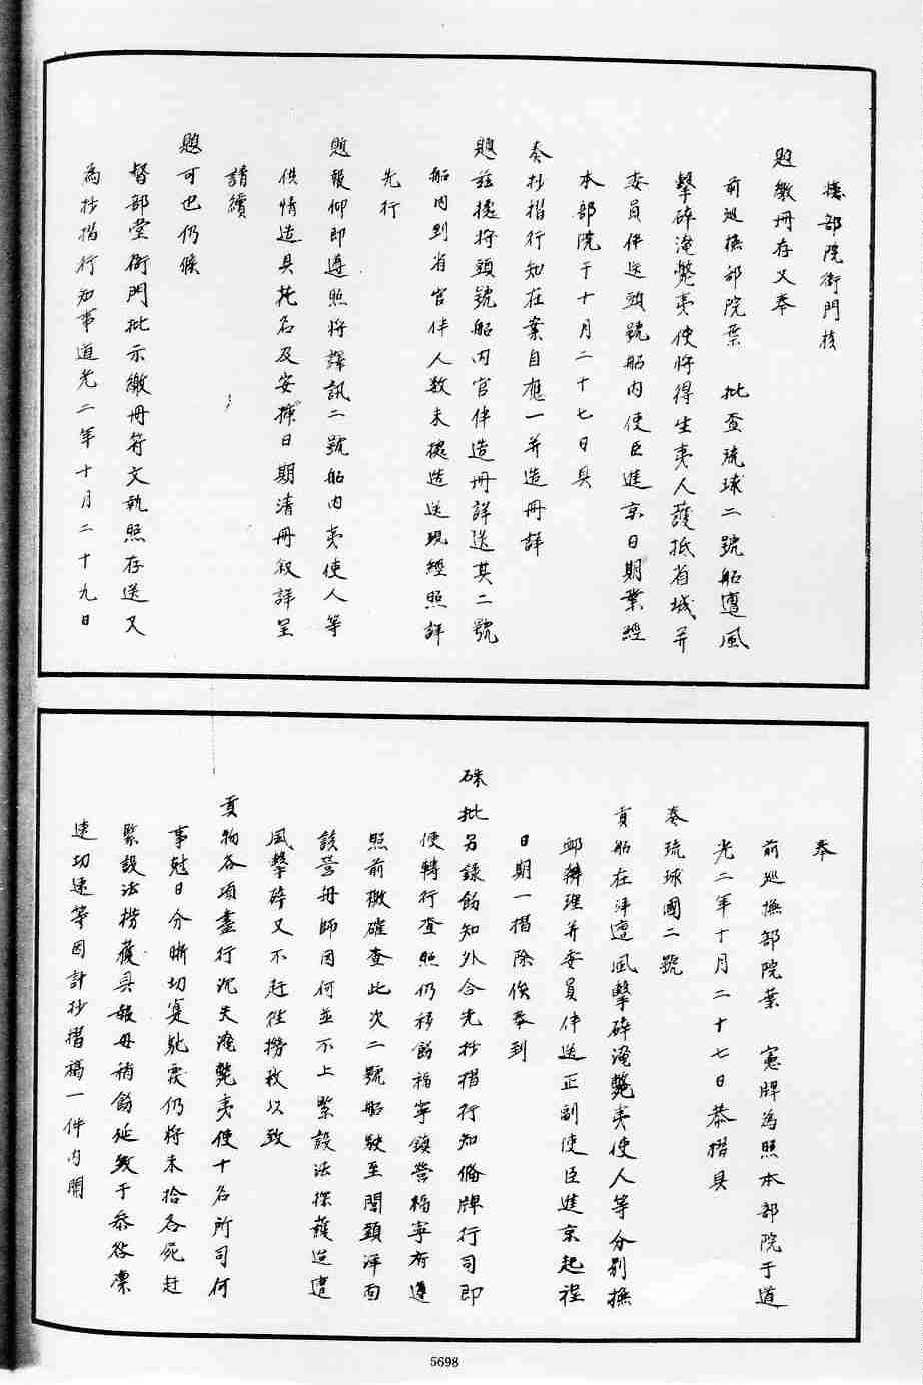 撫部院衙門核
題繳冊存又奉
前巡撫部院葉　批查琉球二號船遭風
擊碎淹斃夷使將得生夷人護抵省城并
委員伴送頭號船內使臣進京日期業經
本部院于十月二十七日具
奏抄摺行知在案自應一并造冊詳
題茲據將頭號船內官伴造冊詳送其二號
船內到省官伴人數未據造送現經照詳
先行
題報仰即遵照將譯訊二號船內夷使人等
供情造具花名及安插日期清冊敘詳呈
請續
題可也仍候
督部堂衙門批示繳冊符文執照存送又
為抄摺行知事道光二年十月二十九日
奉
前巡撫部院葉　憲牌為照本部院于道
光二年十月二十七日恭摺具
奏琉球國二號
貢船在洋遭風擊碎淹斃夷使人等分別撫
卹辦理并委員伴送正副使臣進京起程
日期一摺除俟奉到
硃批另錄飭知外合先抄摺行知備牌行司即
便轉行查照仍移飭福寧鎮營福寧府遵
照前檄確查此次二號船駛至閭頭洋面
該營舟師因何並不上緊設法探護迨遭
風擊碎又不赶往撈救以致
貢物各項盡行沉失淹斃夷使十名所司何
事尅日分晰切實馳覆仍將未拾各死赶
緊設法撈獲具報毋稍飭延致于參咎凜
速切速等因計抄摺稿一件內開
5698